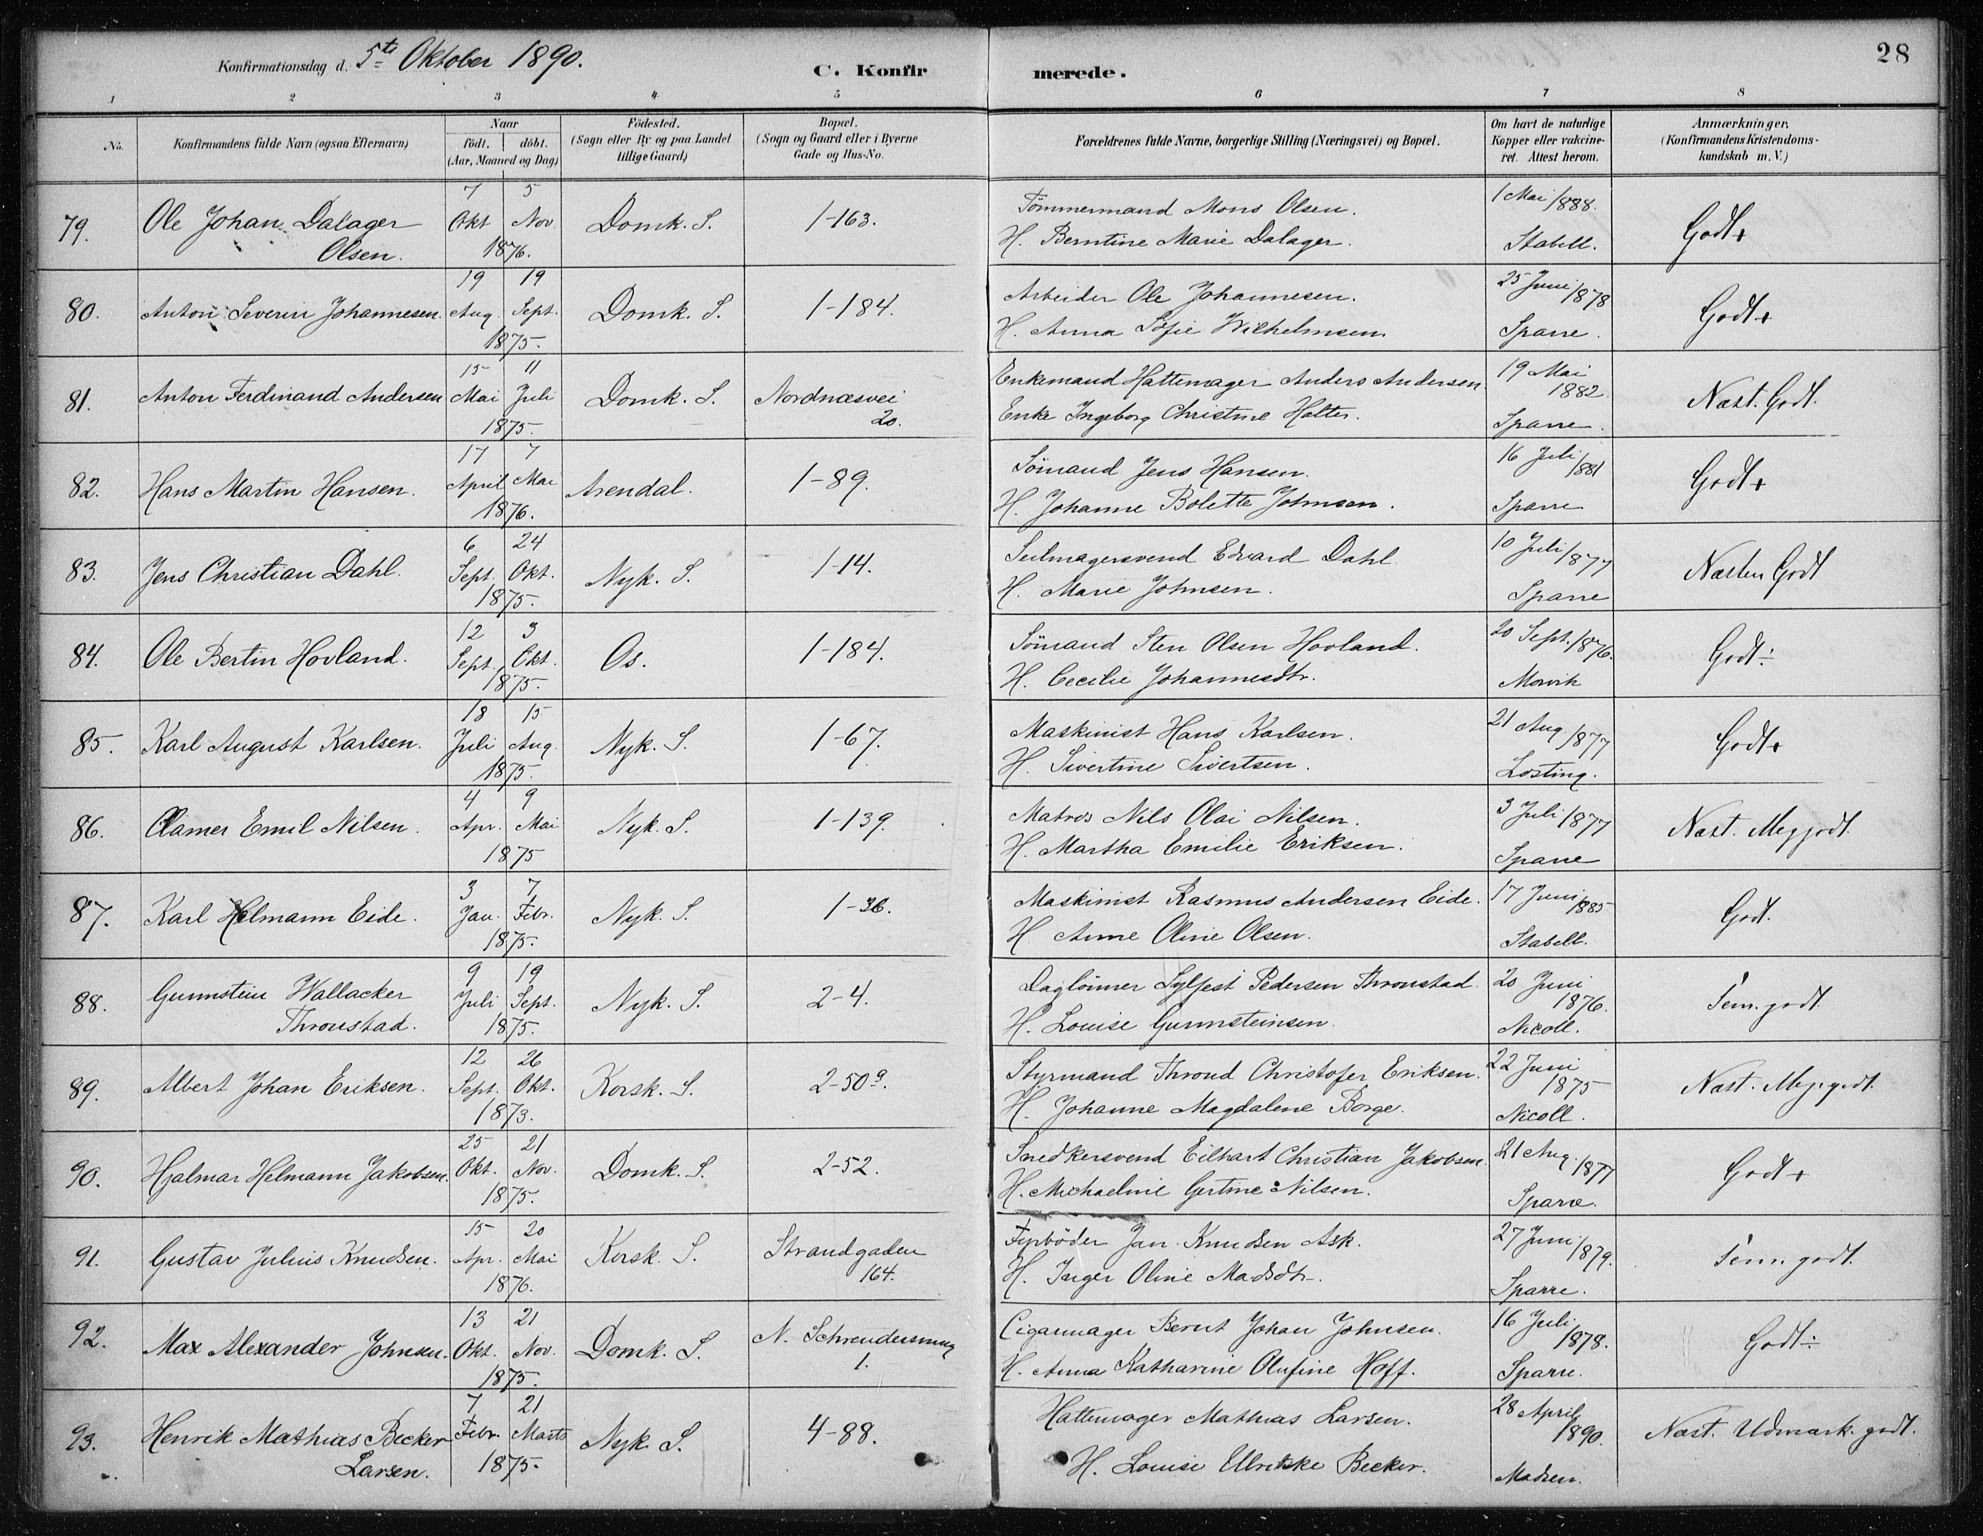 Konfirmationsdag d. 5te Oktober 1890.
C. Konfir merede.
28
1 2 3 4 5 6 7 8
No.
Konfirmandens fulde Navn (ogsaa Efternavn)
Naar
födt. döbt.
(Aar, Maaned og Dag)
Födested.
(Sogn eller By og paa Landet
tillige Gaard)
Bopæl.
(Sogn og Gaard eller i Byerne
Gade og Hus-No.
Forældrenes fulde Navne, borgerlige Stilling (Næringsvei) og Bopæl.
Om havt de naturlige
Kopper eller vakcine-
ret. Attest herom.
Anmærkninger.
(Konfirmandens Kristendoms-
kundskab m. V.)
79. Ole Johan Dalager
Olsen.
7 Okt 5 Nov.
1876.
Domk. S.
1-163.
Tömmermand Mons Olsen.
H. Berntine Marie Dalager.
1 Mai/1888.
Stabell.
Godt+
80. Anton Severin Johannesen.
19 Aug. 19 Sept.
1875.
Domk. S.
1-184.
Arbeider Ole Johannesen.
H. Anna Sofie Wilhelmsen.
25 Juni/1878
Sparre.
Godt+
81. Anton Ferdinand Andersen
15 Mai 11 Juli
1875.
Domk. S.
Nordnæsvei
20.
Enkemand Hattemager Anders Andersen.
Enke Ingeborg Christine Halter.
19 Mai
1882.
Sparre.
Næst. Godt.
82. Hans Martin Hansen.
17 April 7 Mai
1876.
Arendal.
1-89.
Sömand Jens Hansen.
H. Johanne Bolette Johnsen.
16 Juli/1881
Sparre
Godt+
83. Jens Christian Dahl.
6 Sept. 24 Okt.
1875.
Nyk. S.
1-14.
Seilmagersvend Edvard Dahl
H. Marie Johnsen.
10 Juli/1877
Sparre
Næsten Godt
84. Ole Bertin Hovland.
12 Sept. 3 Okt.
1875.
Os.
1-184.
Sömand Sten Olsen Hovland.
H. Cecilie Johannesdtr.
20 Sept./1876.
Morvik
Godt÷
85. Karl August Karlsen.
18 Juli 15 Aug.
1875.
Nyk. S.
1-67.
Maskinist Hans Karlsen.
H. Sivertine Sivertsen.
21 Aug./1877
Losting.
Godt+
86. Clamer Emil Nilsen.
4 Apr. 9 Mai
1875
Nyk. S.
1-139.
Matros Nils Olai Nilsen.
H. Martha Emilie Eriksen.
3 Juli/1877
Sparre
Næst. Meg. godt.
87. Karl Helmann Eide.
3 Jan. 7 Febr.
1875.
Nyk. S.
1-36.
Maskinist Rasmus Andersen Eide.
H Anne Oline Olsen.
17 Juni/1885
Stabell.
Godt.
88. Gunnstein Wallacker
Thronstad.
9 Juli 19 Sept.
1875.
Nyk. S.
2-4.
Daglönner Sylfest Pedersen Thronstad.
H. Louise Gunnsteinsen.
20 Juni
1876.
Nicoll.
Tem. godt
89. Albert Johan Eriksen.
12 Sept. 26 Okt.
1873.
Korsk. S.
2-50 9.
Styrmand Thrond Christofer Eriksen.
H. Johanne Magdalene Borge.
22 Juni
1875
Nicoll.
Næst. Meg. godt.
90. Hjalmar Helmann Jakobsen.
25 Okt. 21 Nov.
1875.
Domk. S.
2-52.
Snedkersvend Eilhart Christian Jakobsen.
H. Michaeline Gertine Nilsen.
21 Aug./1877
Sparre.
Godt+
91. Gustav Julius Knudsen.
15 Apr. 20 Mai
1876.
Korsk. S.
Strandgaden
164.
Fyrböder Jan Knudsen Ask.
H. Inger Oline Madsdtr.
27 Juni/1879.
Sparre.
Tem. godt.
92. Max Alexander Johnsen.
13 Okt. 21 Nov.
1875.
Domk. S.
N.
1.
Cigarmager Bernt Johan Johnsen.
H. Anna Katharine Olufine Hoff.
16 Juli
1878.
Sparre.
Godt÷
93. Henrik Mathias Becker
Larsen.
7 Febr. 21 Marts
1875.
Nyk. S.
4-88.
Hattemager Mathias Larsen.
H. Louise Becker.
28 April
1890.
Madsen.
Næst. Udmærk. godt.